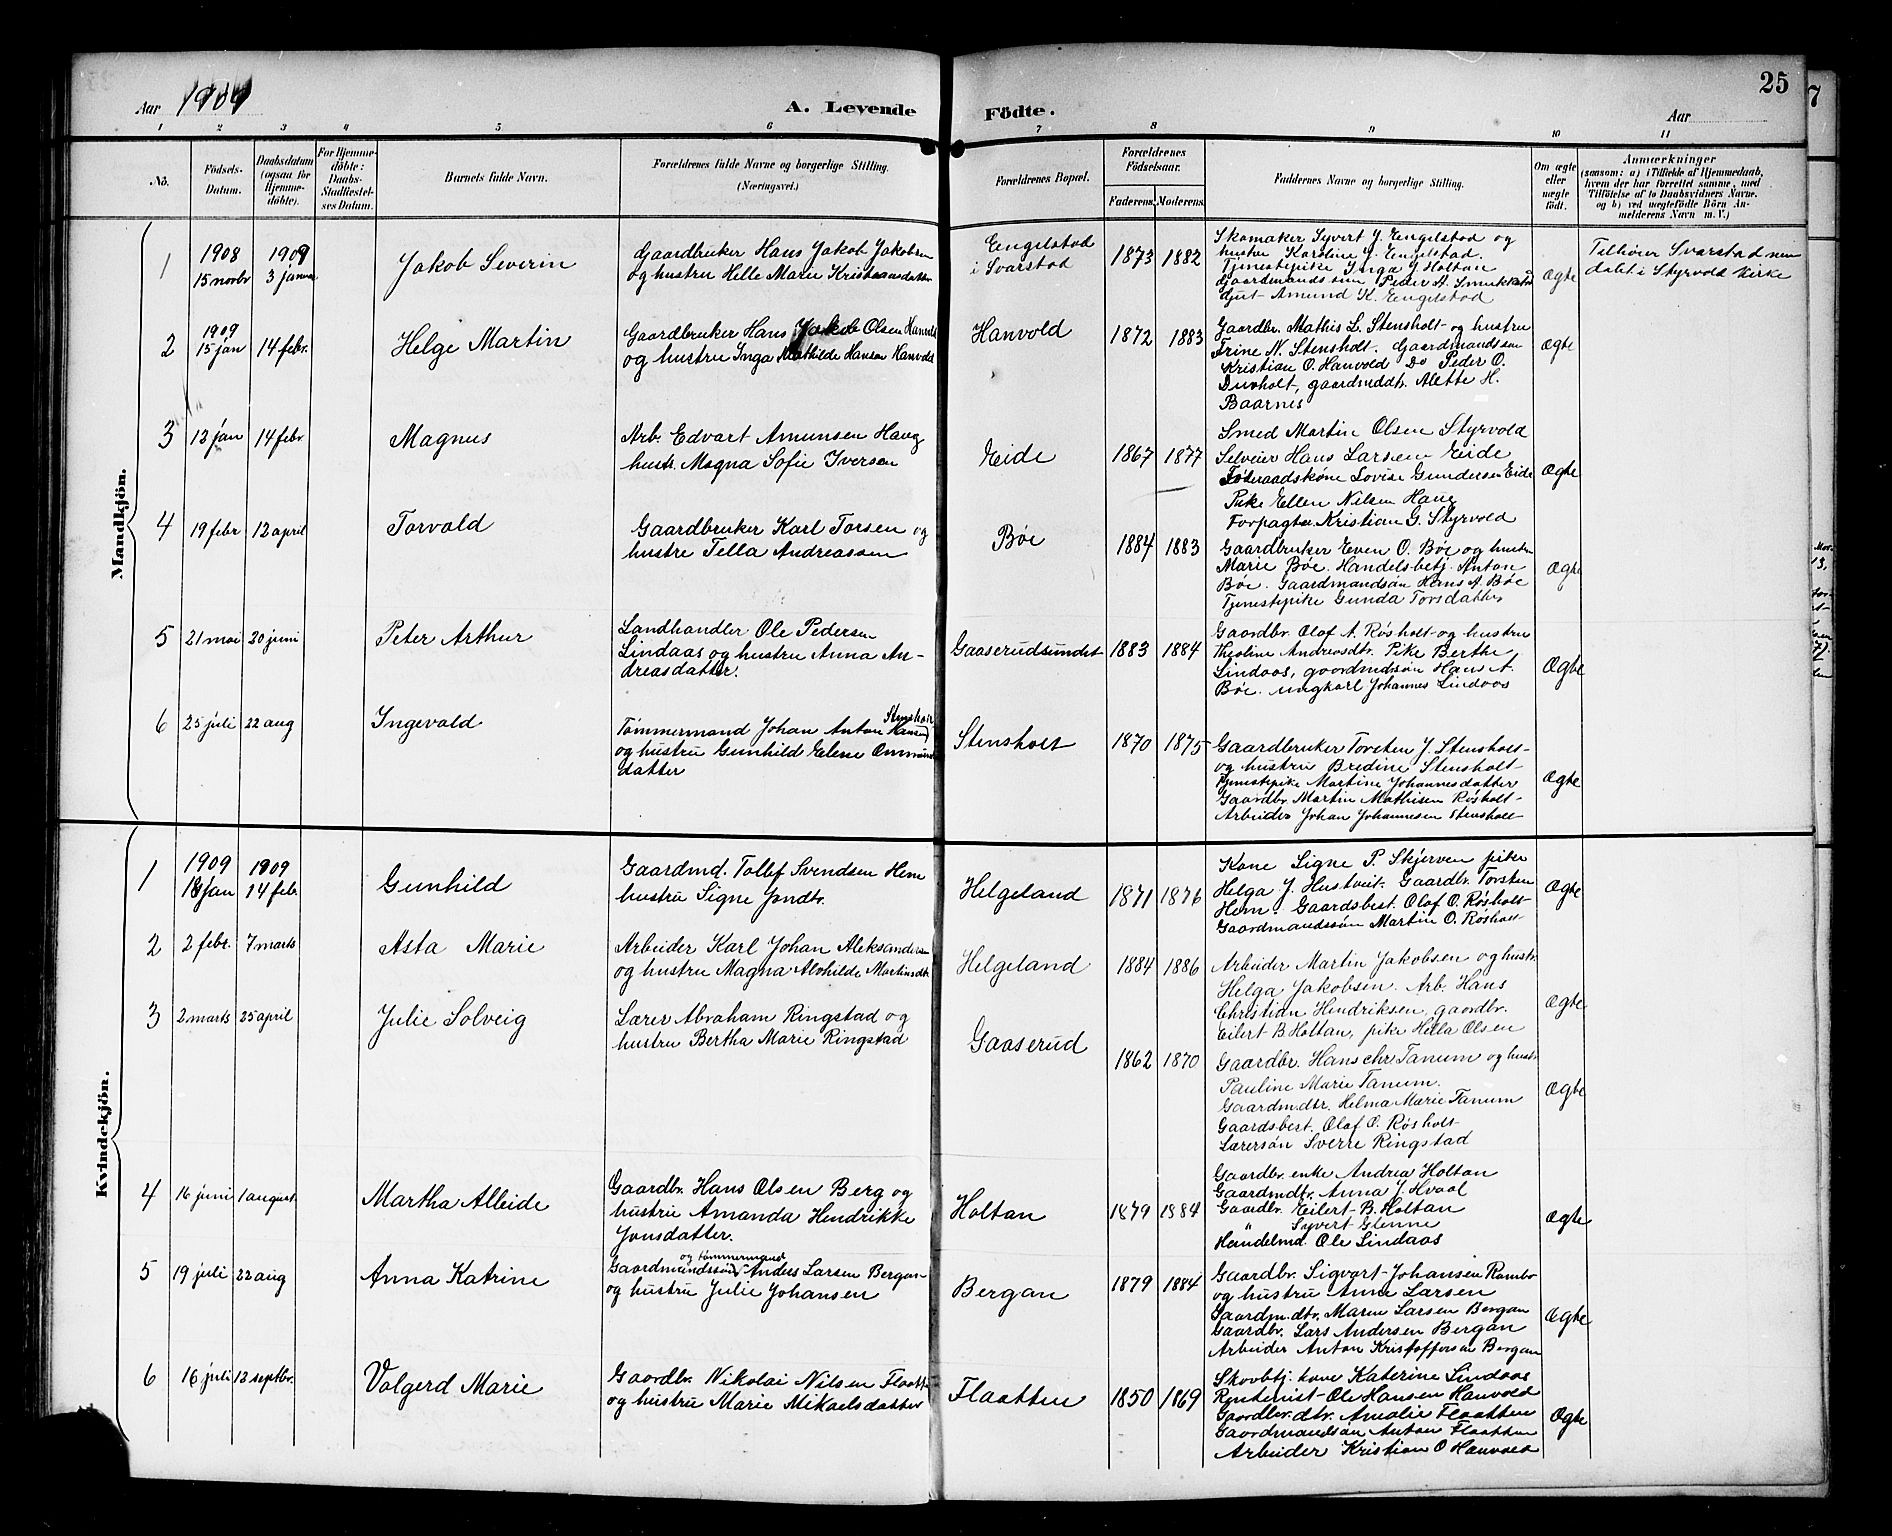 25
Aar 1909
A. Levende Födte.
Aar
1 2 3 4 5 6 7 8 9 10 11
No.
Födsels-
Datum.
Daabsdatum
(ogsaa for
Hjemme-
döbte).
For Hjemme-
döbte:
Daabs-
Stadfæstel-
ses Datum.
Barnets fulde Navn.
Forældrenes fulde Navne og borgerlige Stilling.
(Næringsvei.)
Forældrenes Bopæl.
Forældrenes
Födselsaar.
Faderens. Moderens.
Faddernes Navne og borgerlige Stilling.
Om ægte
eller
uægte
födt.
Anmærkninger
(saasom: a) i Tilfælde af Hjemmedaab,
hvem der har forrettet samme, med
Tilföielse af to Daabsvidners Navne.
og b) ved uægtefödte Börn An-
melderens Navn m. V.)
Mandkjön.
1
1908
15 novbr
1909
3 januar
Jakob Severin
Gaardbruker Hans Jakob Jakobsen
og hustru Helle Marie Kristiansdatter
Engelstad
i Svarstad
1873 1882
Skomaker Syvert J. Engelstad og
hustru Karoline J. Engelstad.
Tjenestepike Inga J. Holtan
Gaardmandssøn Peder A.
Gut Amund K. Engelstad
Ægte
Tilhører Svarstad men
døbt i Styrvold kirke
2
1909
15 jan
14 febr.
Helge Martin
Gaardbruker Hans Jakob Olsen Hanvold
og hustru Inga Mathilde Hansen Hanvold
Hanvold
1872 1883
Gaardbr. Mathis L. Stensholt og hustru
Trine N. Stensholt. Gaardmandsøn
Kristian O. Hanvold Do Peder O.
Duvholt, gaardmddtr. Alette H.
Baarnes
Ægte
3
12 jan
14 febr
Magnus
Arb. Edvart Amunsen Haug
hustr. Magna Sofie Iversen
Eide
1867 1877
Smed Martin Olsen Styrvold
Selveier Hans Larsen Eide
Føderaadskone Lovise Gundersen Eide
Pike Ellen Nilsen Haug
Forpagter Kristian G. Styrvold
Ægte
4
19 febr
12 april
Torvald
Gaardbruker Karl Torsen og
hustru Tella Andreassen
Bøe
1884 1883
Gaardbruker Even O. Bøe og hustru
Marie Bøe. Handelsbetj. Anton
Bøe. Gaardmandsøn Hans A. Bøe
Tjenestepike Gunda Torsdatter
Ægte
5
21 mai
20 juni
Peter Arthur
Landhandler Ole Pedersen
Lindaas og hustru Anna An-
dreasdatter.
Gaaserudsundet
1883 1884
Gaardbr. Olaf A. Røsholt og hustru
Theoline Andreasdtr. Pike Berthe
Lindaas, gaardmdsøn Hans A.
Bøe. ungkarl Johannes Lindaas
Ægte
6
25 juli
22 aug
Ingevald
Tømmermand Johan Anton Hansen Stensholt
og hustru Gunhild Elene Ommunds
datter
Stensholt
1870 1875
Gaardbruker Torsten J. Stensholt
og hustru Bredine Stensholt
Tjenestepike Martine Johannesdatter
Gaardbr. Martin Mathisen Røsholt
Arbeider Johan Johannesen Stensholt
Ægte
Kvindekjön.
1
1909
18 jan
1909
14 feb.
Gunhild
Gaardmd. Tollef Svendsen Hem
hustru Signe Jondtr.
Helgeland
1871 1876
Kone Signe P. Skjerven pike
Helga J. Hustveit. Gaardbr. Torsten
Hem. Gaardsbest. Olaf O. Røsholt
Gaardmandssøn Martin O. Røsholt
Ægte
2
2 febr.
7 marts
Asta Marie
Arbeider Karl Johan Aleksandersen
og hustru Magna Alvhilde Martinsdtr
Helgeland
1884 1886
Arbeider Martin Jakobsen og hustr.
Helga Jakobsen. Arb. Hans
Christian Hendriksen, gaardbr.
Eilert B. Holtan, pike Hella Olsen
Ægte
3
2 marts
25 april
Julie Solveig
Lærer Abraham Ringstad og
hustru Bertha Marie Ringstad
Gaaserud
1862 1870
Gaardbr. Hans Chr. Tanum og hustr.
Pauline Marie Tanum.
Gaardm.dtr. Helma Marie Tanum
Gaardsbest. Olaf O. Røsholt
Lærersøn Sverre Ringstad
Ægte
4
16 juni
1 august
Martha Alleide
Gaardbr. Hans Olsen Berg og
hustru Amanda Hendrikke
Jonsdatter.
Holtan
1879 1884
Gaardbr. enke Andrea Holtan
Gaardmdtr. Anna J. Hvaal
Gaardbr. Eilert B. Holtan
" Syvert Glenne
Handelmd. Ole Lindaas
Ægte
5
19 juli
22 aug
Anna Katrine
og tømmermand
Gaardmandssøn Anders Larsen Bergan
og hustru Julie Johansen
Bergan
1879 1884
Gaardbr. Sigvart Johansen Rambo
og hustru Anne Larsen
Gaardm.dtr. Maren Larsen Bergan
Gaardbr. Lars Andersen Bergan
Arbeider Anton Kristoffersen Bergan
Ægte
6
16 juli
12 septbr.
Valgerd Marie
Gaardbr. Nikolai Nilsen Flaatten
og hustru Marie Mikaelsdatter
Flaatten
1850 1869
Skovbtj. kone Katerine Lindaas
Rentenist Ole Hansen Hanvold
Gaardbr.dtr. Amalie Flaatten
Gaardmandsøn Anton Flaatten
Arbeider Kristian O Hanvold
Ægte